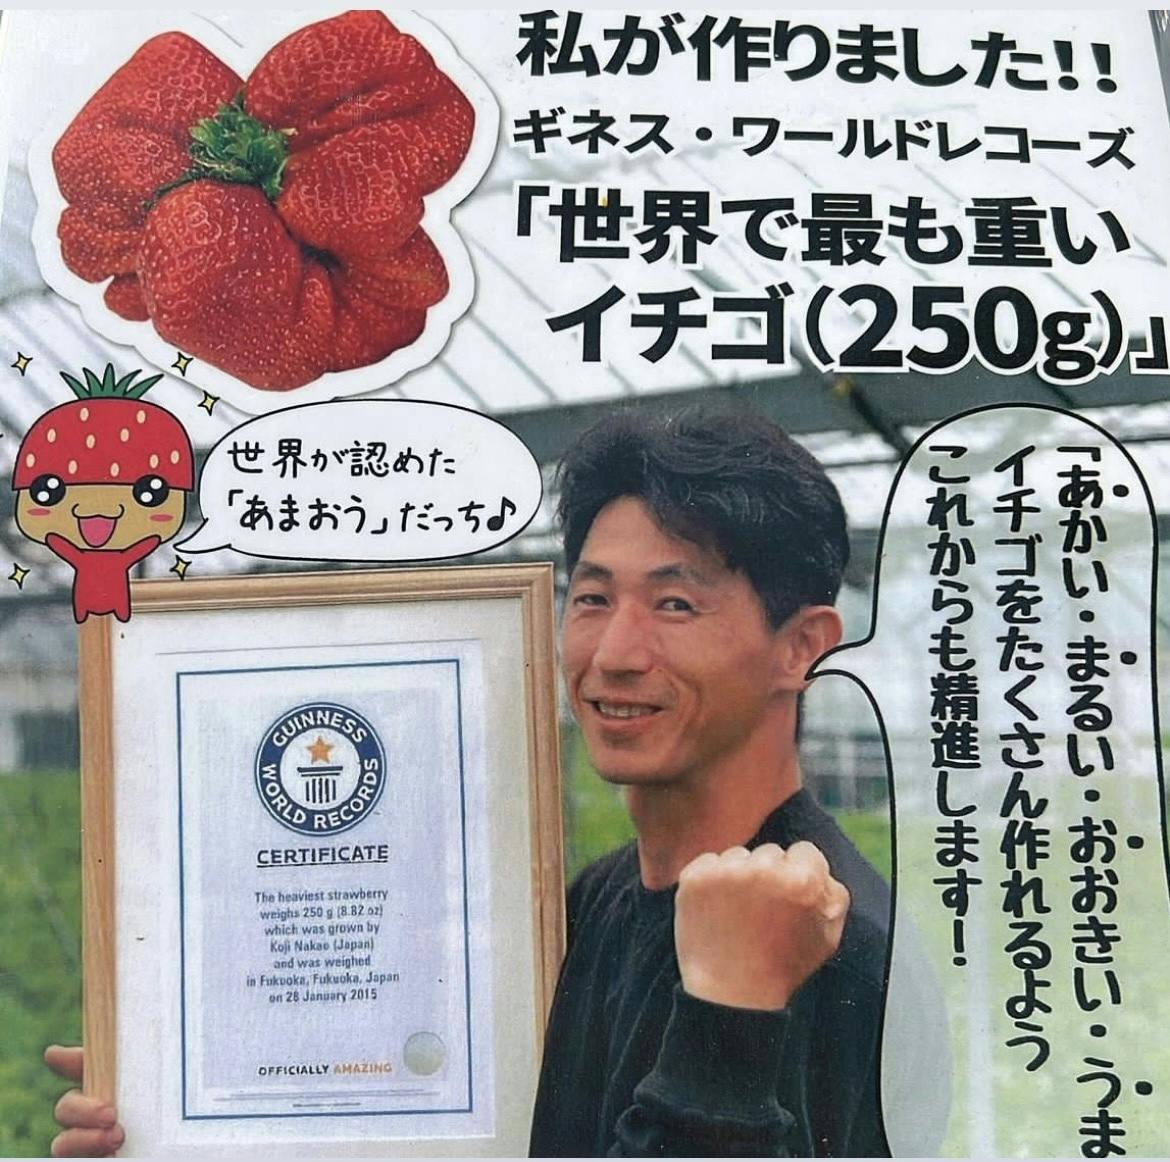 私が作りました!!
ギネス・ワールドレコーズ
「世界で最も重い
イチゴ(250g)」
世界が認めた
「あまおう」だっち♪
「あかい・まるい・おおきい・うま
イチゴをたくさん作れるよう
これからも精進します!
GUINNESS
WORLD RECORDS
CERTIFICATE
The heaviest strawberry
weighs 250 g (8.82 oz)
which was grown by
Koji Nakao (Japan)
and was weighed
in Fukuoka, Fukuoka, Japan
on 28 January 2015
OFFICIALLY AMAZING